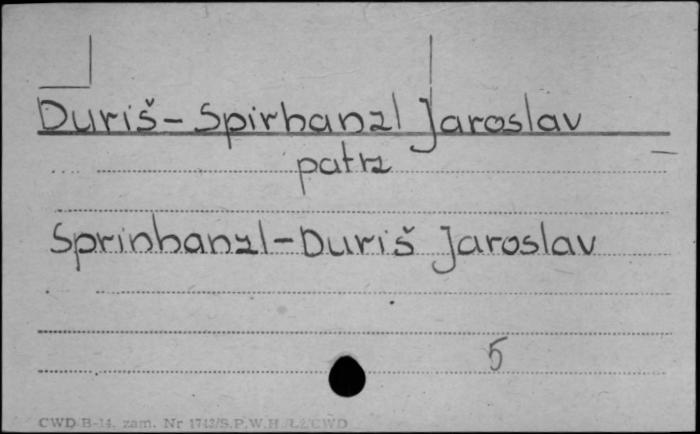 Duriš - Spirhanzl Jaroslav
patrz
Sprinhanzl - Duriš Jaroslav
5
CWD B-14. zam. Nr 1742/S.P.W.H. Ł2/CWD